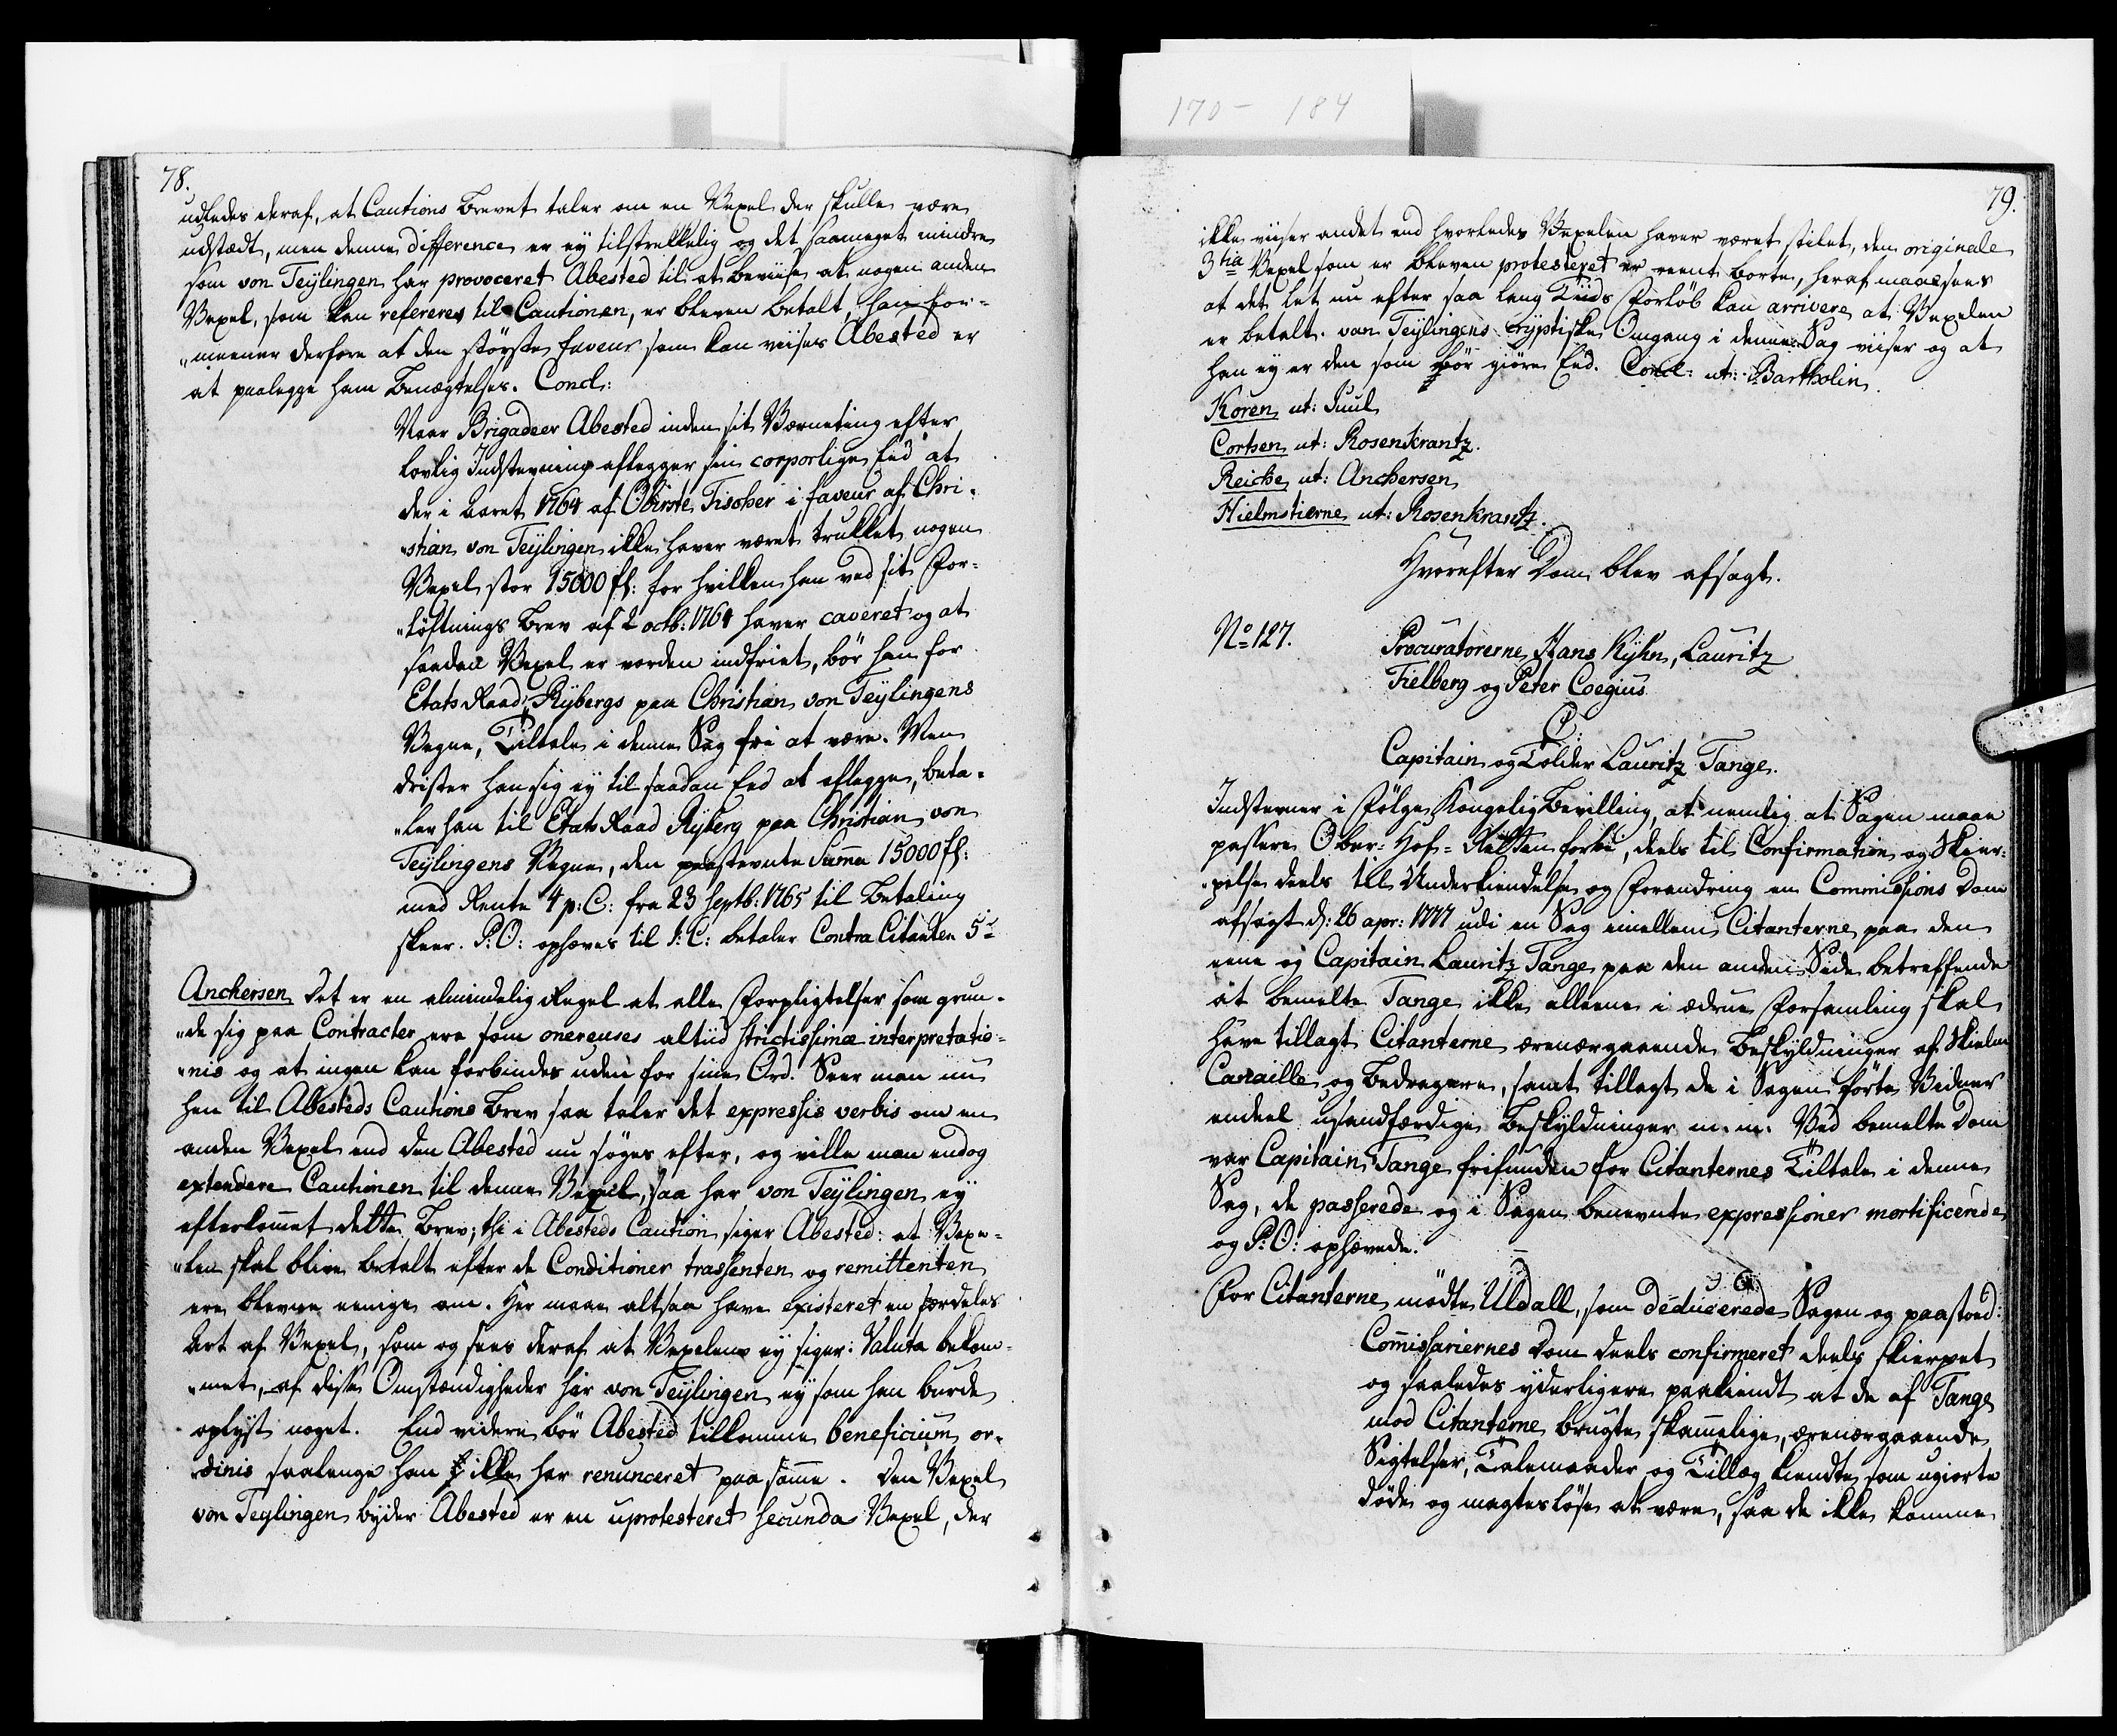 170 - 184
78.
udledes deraf, at Cautions Brevet taler om en Vexel der skulle være
udstædt, men denne difference er ey tilstrekkelig og det saameget mindre
som von Teÿlingen har provoceret Abested til at beviise at nogen anden
Vexel, som kan refereres til Cautionen, er bleven betalt, han for-
"meener derfore at den største faveur som kan viises Abested er
at paalegge ham Benægtelses. Concl:
Naar Brigadeer Abested inden sit Værneting efter
lovlig Indstevning aflegger sin corporlige Eed at
der i Aaret 1764 af Obirste Fischer i faveur af Chri-
"stian von Teÿlingen ikke haver været trukket nogen
Vexel stor 15000 fl: for hvilken han ved sit For-
"løftnings Brev af 2 octb: 1764 haver caveret og at
saadan Vexel er vorden indfriet, bør han for
Etats Raad Rÿbergs paa Christian von Teÿlingens
Vegne, Tiltale i denne Sag fri at være. Men
drister han sig ey til saadan Eed at aflegge, beta-
"ler han til Etats Raad Rÿberg paa Christian von
Teÿlingens Vegne, den paastevnte Summa 15000 fl:
med Rente 4 p: C: fra 23 Septb: 1765 til Betaling
skeer. P: O: ophæves til I: C: betaler Contra Citanten 5
Anchersen Det er en almindelig Regel at alle Forpligtelser som grun-
"de sig paa Contracter ere som onereuses altiid strictissimæ interpretatio-
"nis og at ingen kan forbindes uden for sine Ord. Seer man nu
hen til Abesteds Cautions Brev saa taler det expressis verbis om en
anden Vexel end den Abested nu søges efter, og ville man endog
extendere Cautionen til denne Vexel, saa har von Teÿlingen eÿ
efterkommet dette Brev; thi i Abesteds Caution siger Abested: at Vexe-
"len skal blive betalt efter de Conditioner trassenten og remittenten
ere blevne eenige om. Her maae altsaa have existeret en særdeles
Art af Vexel, som og sees deraf at Vexelen ey siger: Valuta bekom-
"met, af disse Omstændigheder har von Teÿlingen eÿ som han burde
oplyst noget. End videre bør Abested tilkomme beneficium or-
dinis saalenge han ikke har renunceret paa samme. Den Vexel
von Teylingen byder Abested er en uprotesteret secunda Vexel, der
79.
ikke viiser andet end hvorledes Vexelen haver været stilet, den originale
3tia Vexel som er bleven protesteret er reent borte, heraf maae sees
at det let nu efter saa lang Tiids Forløb kan arrivere at Vexelen
er betalt. von Teÿlingens cryptiske Omgang i denne Sag viiser og at
han ey er den som bør giøre Eed. Concl: ut: Bartholin.
Koren ut: Juul
Cortsen ut: Rosenkrantz.
Reiche ut: Anchersen
Hielmstierne ut: Rosenkrantz.
Hvorefter Dom blev afsagt.
No 127.
Procuratorerne Hans Kÿhn, Lauritz
Fielberg og Peter Coegius
C:
Capitain og Tolder Lauritz Tange.
Indstevner i Følge Kongelig Bevilling, at nemlig at Sagen maae
passere Ober-Hof-Retten forbi, deels til Confirmation og Skier-
"pelse deels til Underkiendelse og Forandring en Commissions Dom
afsagt d: 26 apr: 1777 udi en Sag imellem Citanterne paa den
eene og Capitain Lauritz Tange paa den anden Side betreffende
at bemelte Tange ikke alleene i ædrue Forsamling skal
have tillagt Citanterne ærenærgaaende Beskyldninger af Skielm
Canaille og Bedragere, samt tillagt de i Sagen førte Vidner
endeel usandfærdige Beskyldninger m. m. Ved bemelte Dom
var Capitain Tange frifunden for Citanternes Tiltale i denne
Sag, de passerede og i Sagen benevnte expressioner mortificerede
og P: O: ophævede.
For Citanterne mødte Uldall, som deducerede Sagen og paastoed:
Commissariernes Dom deels confirmeret deels skierpet
og saaledes yderligere paakiendt at de af Tange
mod Citanterne brugte skammelige, ærenærgaaende
Sigtelser, Talemaader og Tillæg kiendtes som ugiorte
døde og magtesløse at være, saa de ikke komme